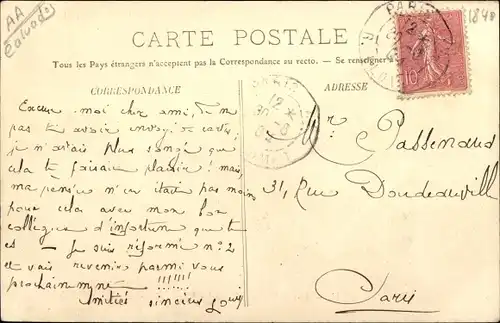 AA
Calvados
1848
CARTE POSTALE
Tous les Pays étrangers n'acceptent pas la Correspondance au recto. — Se renseigner à
CORRESPONDANCE
ADRESSE
PARIS
12
PARIS
12
10
Excuse moi cher ami, de ne
pas t'avoir envoyé de carte,
je n'avais plus songé que
cela te faisait plaisir ! mais
ma pensée n'en était pas moins
pour cela avec mon bon
collègue d'infortune que tu
es — Je suis réformé n° 2
et vais revenir parmi vous
prochainement !!!!!!!
Amitiés sincères Louis
Passenaud
31, Rue Doudeauville
Paris